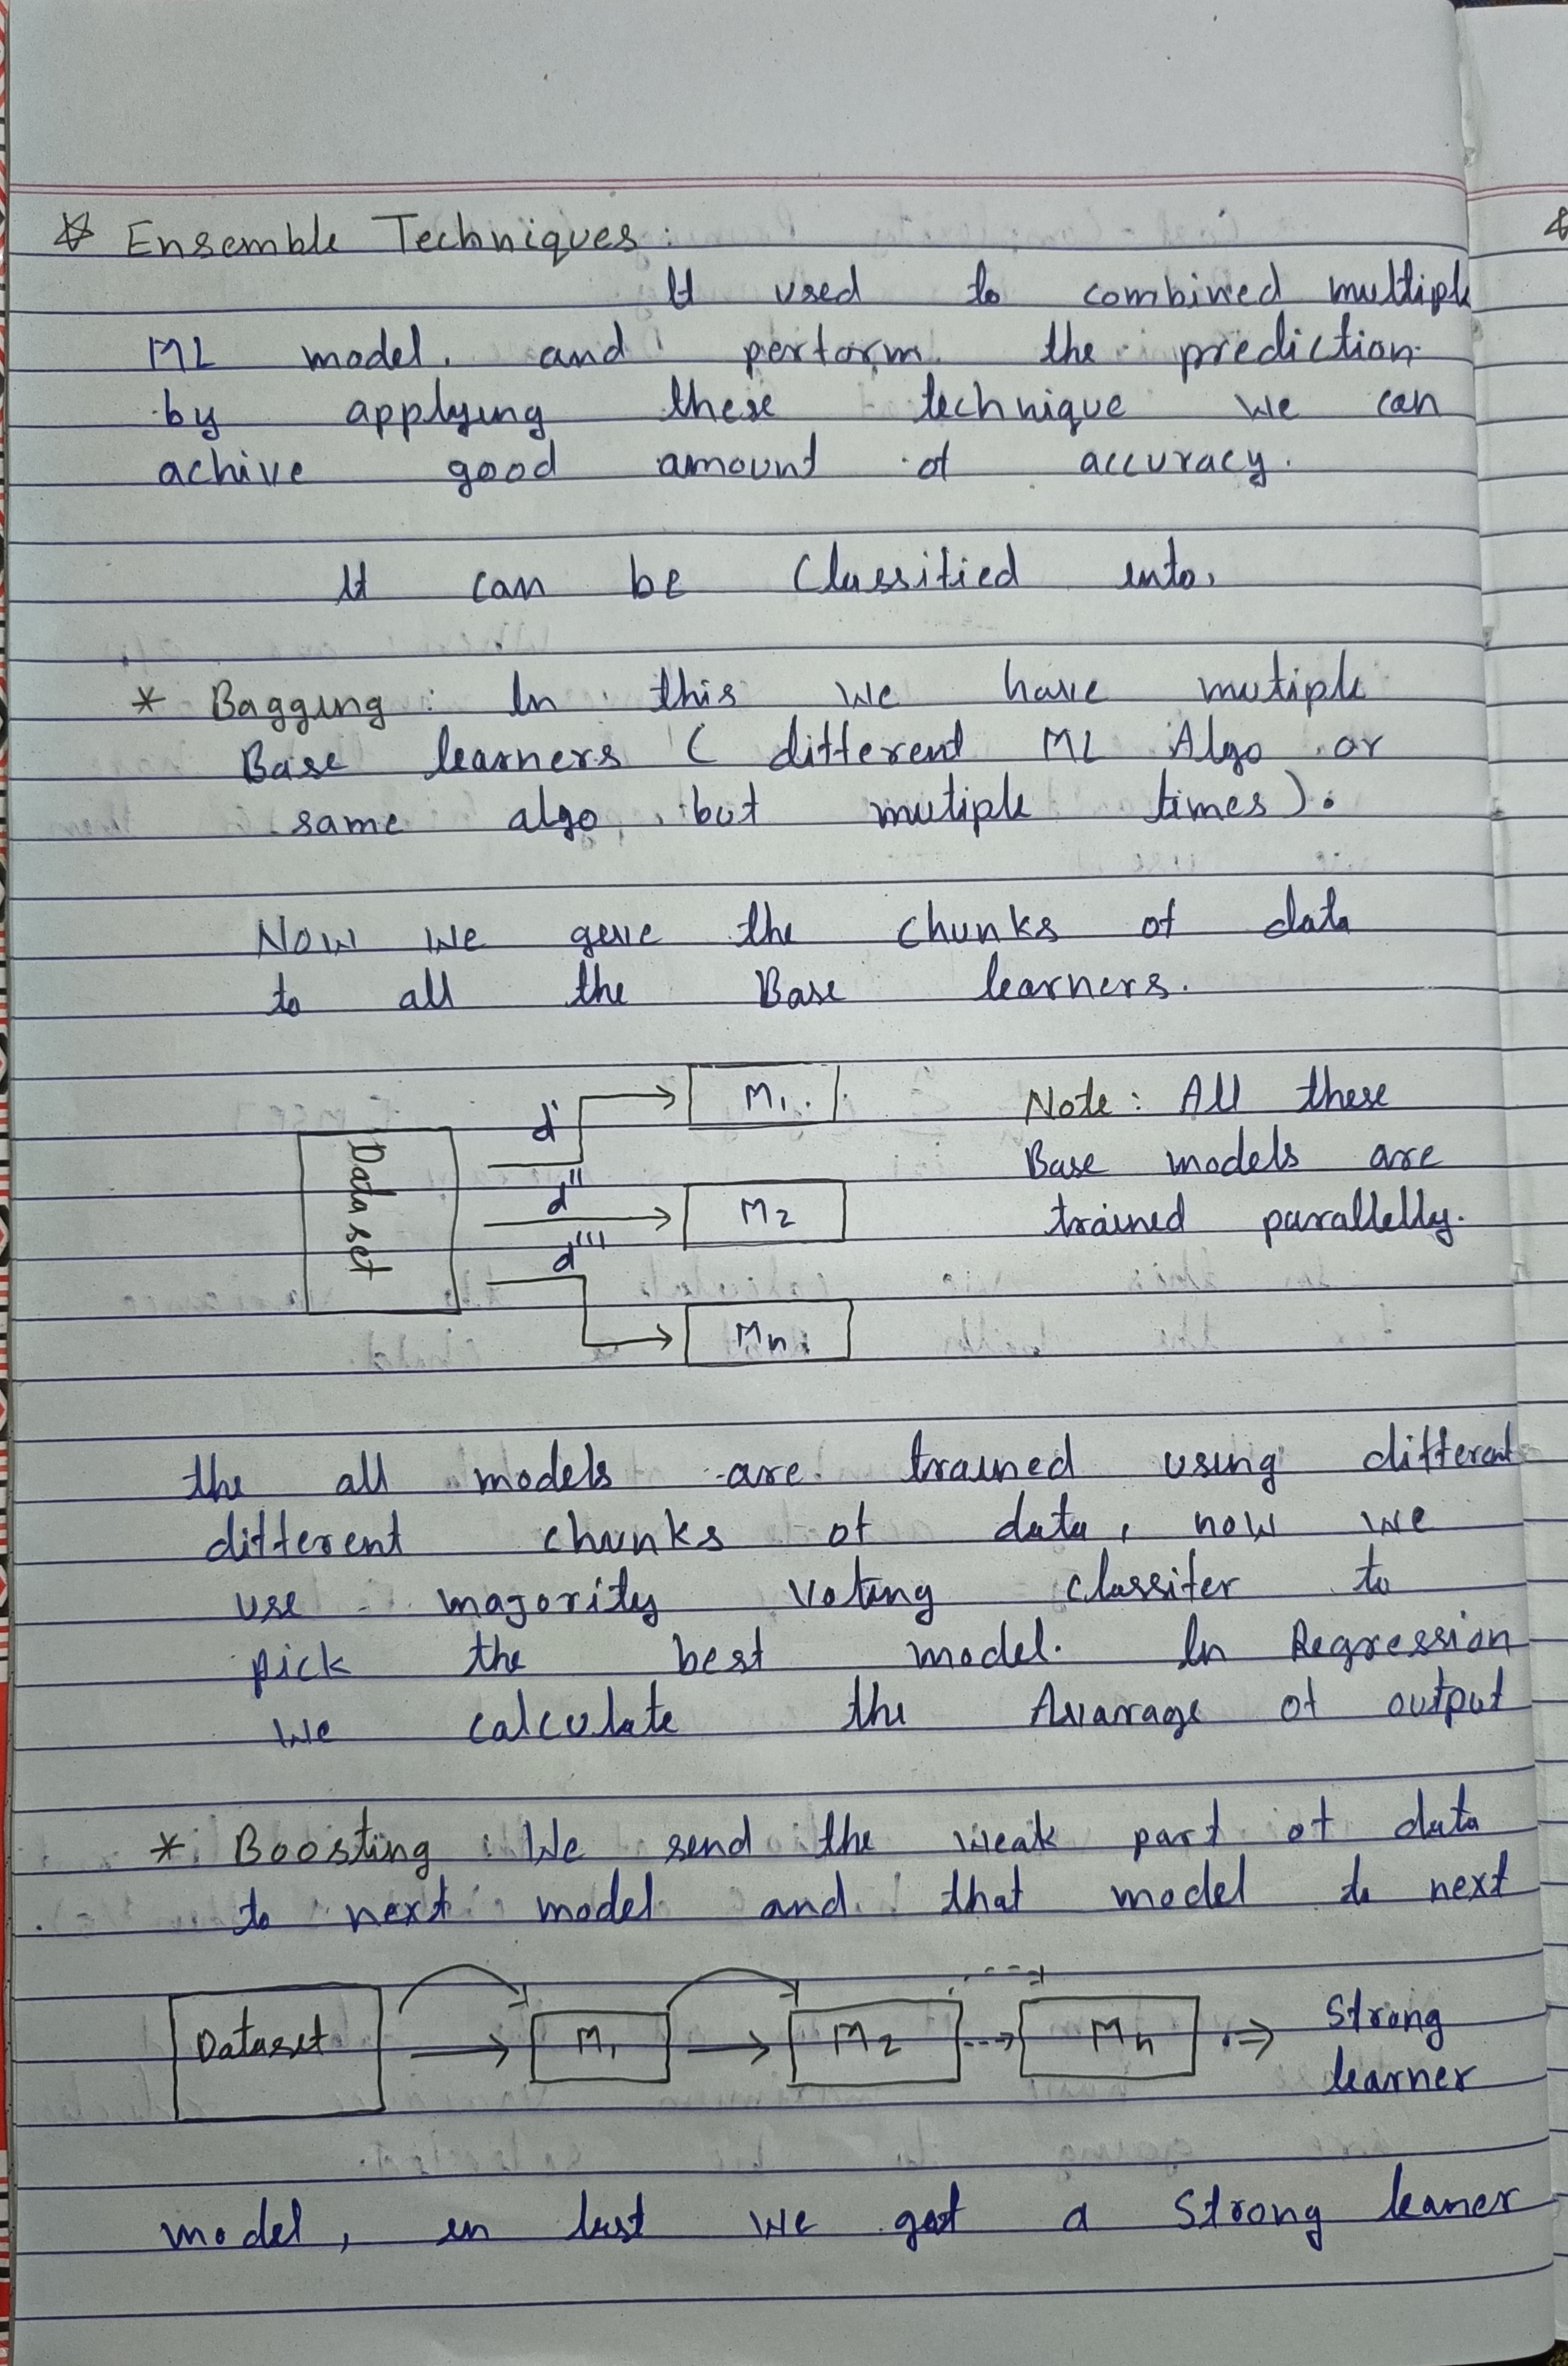 ☆ Ensemble Techniques :
It used to combined multiple
ML model. and perform the prediction
by applying these technique we can
achive good amount of accuracy.
It can be Classified into,
* Bagging : In this we have mutiple
Base learners ( different ML Algo or
same algo, but mutiple times).
Now we give the chunks of data
to all the Base learners.
Data set
d'
M1.
d''
M2
d'''
Mn
Note : All these
Base models are
trained parallelly.
the all models are trained using different
different chunks of data, now we
use majority voting classifer to
pick the best model. In Regression
we calculate the Avarage of output
* Boosting : We send the weak part of data
to next model and that model to next
Dataset
M1
M2
Mn
Strong
learner
model, in last we get a Strong leaner